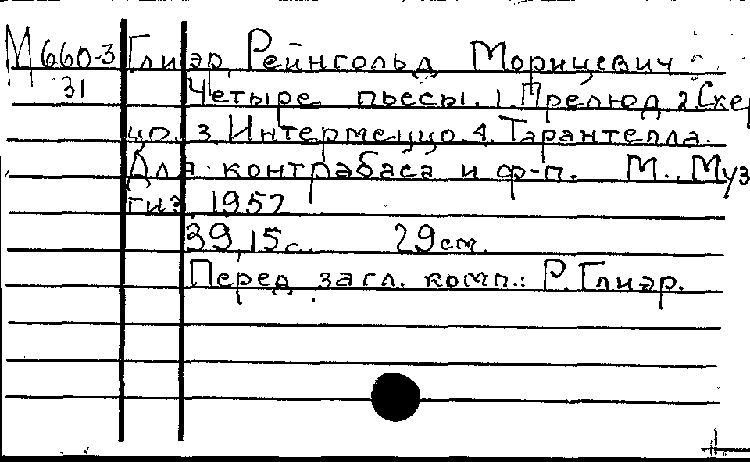 М660-3 Глиэр, Рейнгольд Морицевич
31 Четыре пьесы. 1. Прелюд 2. Скер
цо. 3. Интермеццо. 4. Тарантелла.
Для контрабаса и ф-п. М., Муз
гиз, 1957
39, 15 с. 29 см.
Перед загл. комп.: Р. Глиэр.